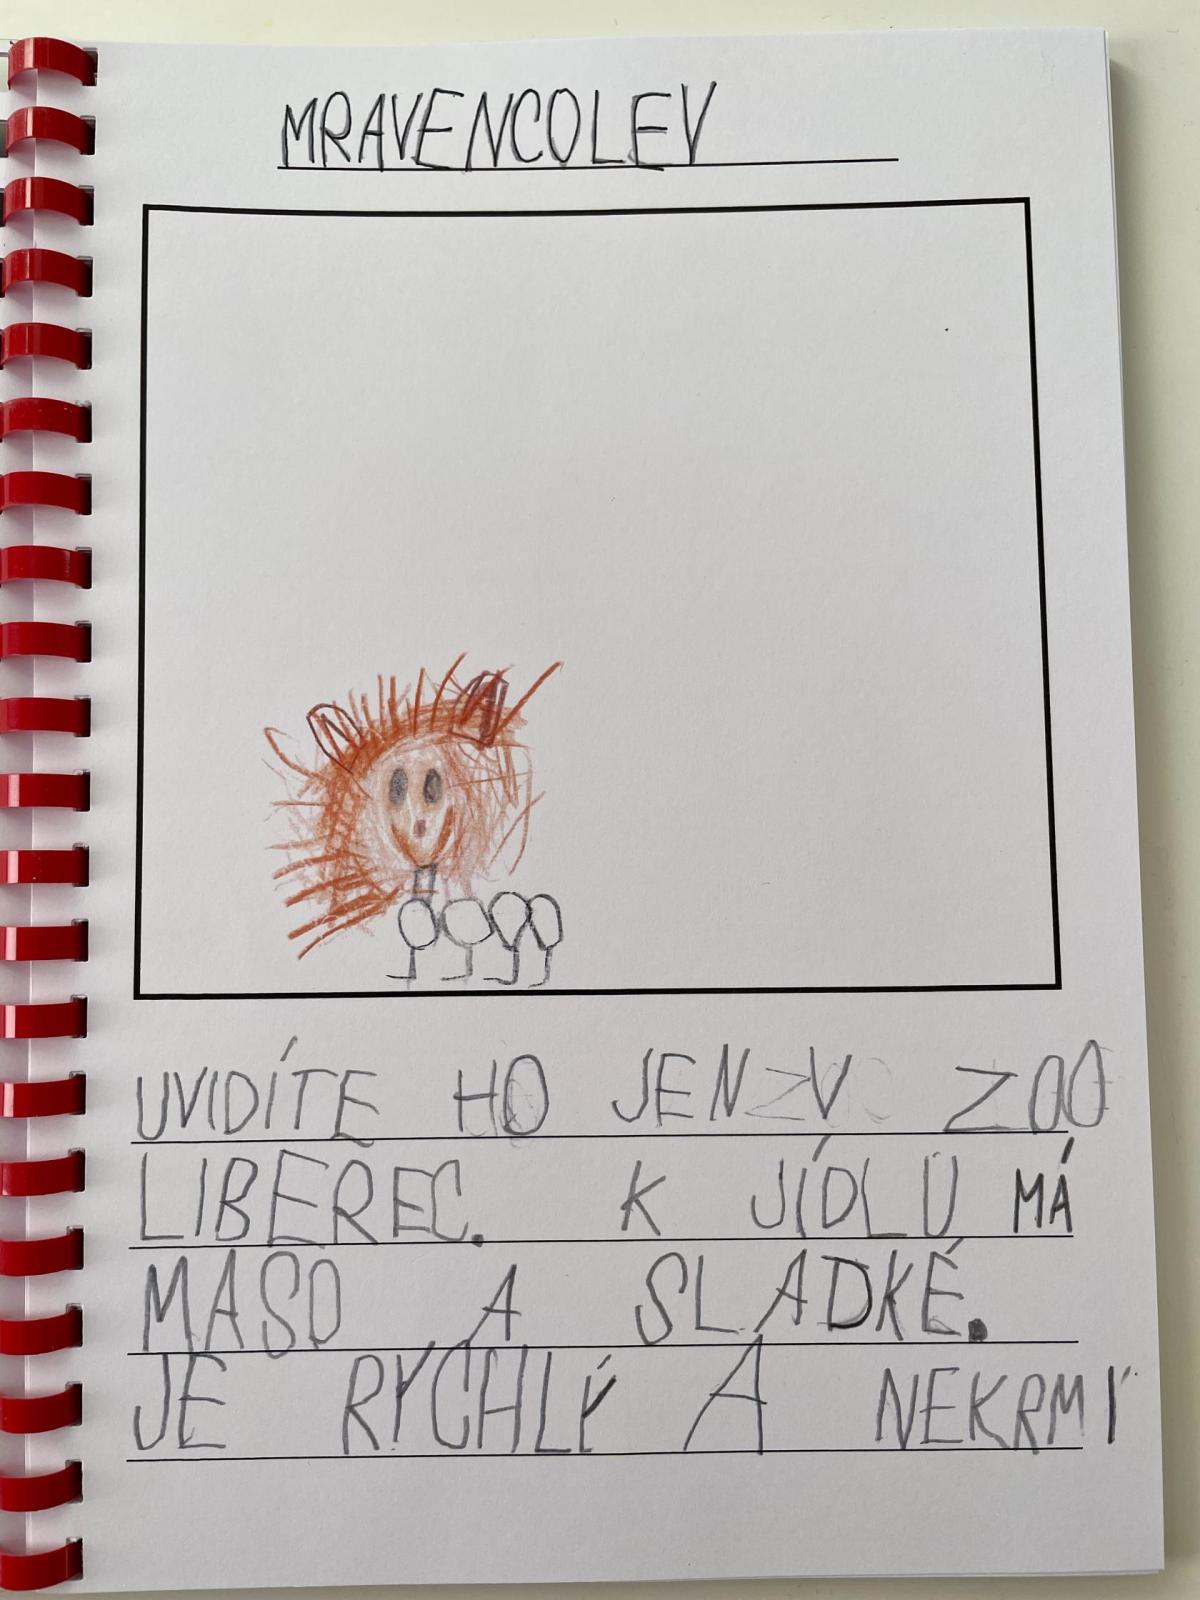 MRAVENCOLEV
UVIDÍTE HO JEN V ZOO
LIBEREC. K JÍDLU MÁ
MASO A SLADKÉ.
JE RYCHLÝ A NEKRMÍ